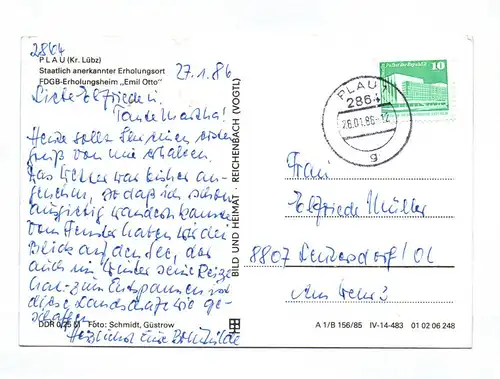 2864
PLAU (Kr. Lübz)
Staatlich anerkannter Erholungsort
FDGB-Erholungsheim „Emil Otto"
27.1.86
Liebe Elfriede u.
Tante Martha!
Heute sollt Ihr einen
gruß von mir erhalten.
Das Wetter war bisher an-
genehm, so daß ich schon
ausgiebig wandern konnte
Vom Fenster haben wir den
Blick auf den See, der
auch im Winter seine Reize
hat - zum Entspannen ist
diese Landschaft wie ge-
schaffen.
Herzlichst Eure
DDR 0,25 M Foto: Schmidt, Güstrow
BILD UND HEIMAT · REICHENBACH (VOGTL)
10
PLAU 1
2864
28.01.86-12
g
Frau
Elfriede Müller
8807 Leutersdorf/OL
A 1/B 156/85 IV-14-483 01 02 06 248